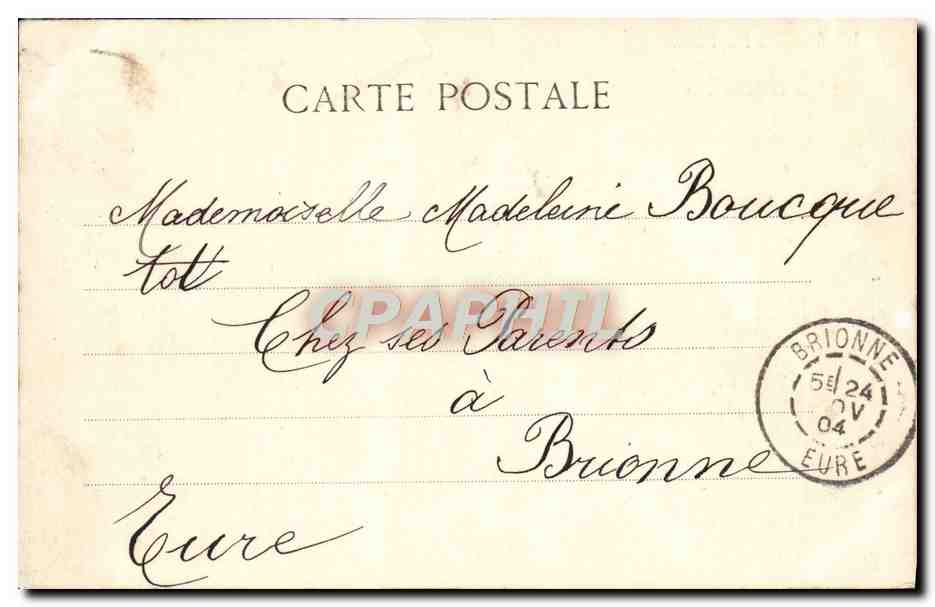 CARTE POSTALE
Mademoiselle Madeleine Boucque
tot
Chez ses Parents
CPAPHIL
à
Brionne
Eure
BRIONNE
5E 24
OV
04
EURE